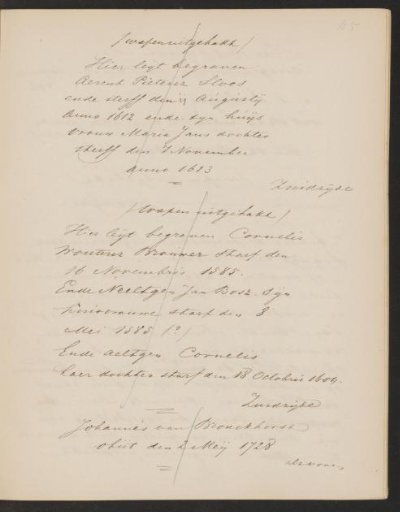 /wapen uitgehakt/
Hier leyt begraven
Aerent Pieterse
ende sterff den Augustij
Anno 1612 ende syn huijs
vrouw Maria Jans dochter
sterff den 1 November
anno 1613
Zuidzijde
/wapen uitgehakt/
Hier leyt begraven Cornelis
Woutersz Brouwer starf den
16 Novembris 1585.
Ende Neeltgen Jan syn
starf den 8
Mei 1585 (?)
Ende Aeltgen Cornelis
haer dochter starf den 18 Octobris 1604.
Zuidzijde
Johannes van Bronckhorst
obiit den 2 Meij 1728